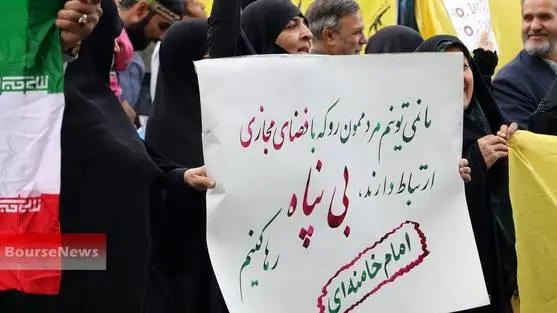 ما نمی تونیم مردممون رو که با فضای مجازی
ارتباط دارند،
بی پناه
رها کنیم
امام خامنه ای
BourseNews